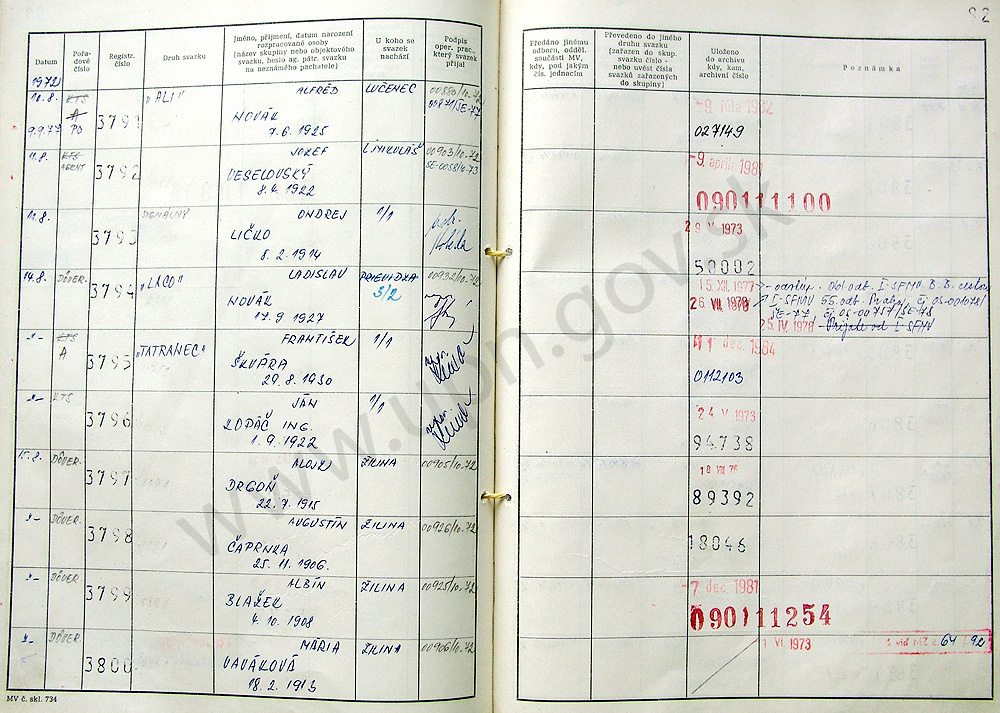 82
Datum
Pořa-
dové
číslo
Registr.
číslo
Druh svazku
Jméno, příjmení, datum narození
rozpracované osoby
(název skupiny nebo objektového
svazku, heslo ag. pátr. svazku
na neznámého pachatele)
U koho se
svazek
nachází
Podpis
oper. prac.,
který svazek
přijal
Předáno jinému
odboru, odděl.
součásti MV,
kdy, pod jakým
čís. jednacím
Převedeno do jiného
druhu svazku
(zařazen do skup.
svazku číslo -
nebo uvést čísla
svazků zařazených
do skupiny)
Uloženo
do archivu
kdy, kam,
archivní číslo
Poznámka
1972
10.8. KTS 3791 "ALI" ALFRÉD LUČENEC 00550/10-72
A 00871/SE-77
9.9.77 PO NOVÁK
7.6.1925
-9. júla 1982
027149
11.8. KTS 3792 JOZEF L. MIKULÁŠ 00903/10-72
AGENT SE-0058/10-73
VESELOVSKÝ
8.4.1922
-9. apríla 1981
090111100
11.8. 3793 SIGNÁLNY ONDREJ 1/1
LIČKO
5.2.1914
29 V 1973
50002
14.8. DÔVER. 3794 "LACO" LADISLAV PRIEVIDZA 00932/10-72
3/2
NOVÁK
17.9.1927
15. XII. 1977
26. VII. 1978
25. IV. 1978 Prijaté od I SFMV
-"- KTS 3795 "TATRANEC" FRANTIŠEK 1/1
A
ŠKVÁRA
29.8.1930
11 dec. 1984
0112103
-"- KTS 3796 JÁN 1/1
KOPÁČ ING.
1.9.1922
24 V 1973
94738
15.8. DÔVER. 3797 ALOJZ ŽILINA 00905/10-72
DRGOŇ
22.7.1915
89392
-"- DÔVER. 3798 AUGUSTÍN ŽILINA 00926/10-72
ČAPRNKA
25.11.1906.
18046
-"- DÔVER. 3799 ALBÍN ŽILINA 00925/10-72
BLAŽEK
4.10.1908
-7 dec. 1981
090111254
-"- DÔVER. 3800 MÁRIA ŽILINA 00906/10-72
VAVÁKOVÁ
18.2.1913
1 VI. 1973
MV č. skl. 734
www.upn.gov.sk